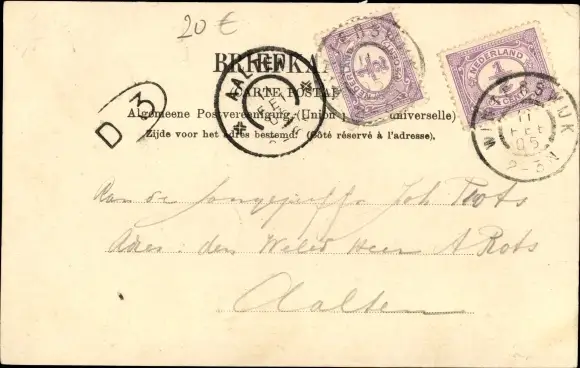 20 €
BRIEFKA
CARTE POSTA
Algemeene Postvereeniging (Union universelle)
Zijde voor het adres bestemd. (Côté réservé à l'adresse).
D 3
AALTEN
FEB
NEDERLAND
½
NEDERLAND
½
WINTERSWIJK
11
FEB
05
2-3N
Aan de Jongejuffr. Joh Rots
Adres: den Weled Heer A Rots
Aalten